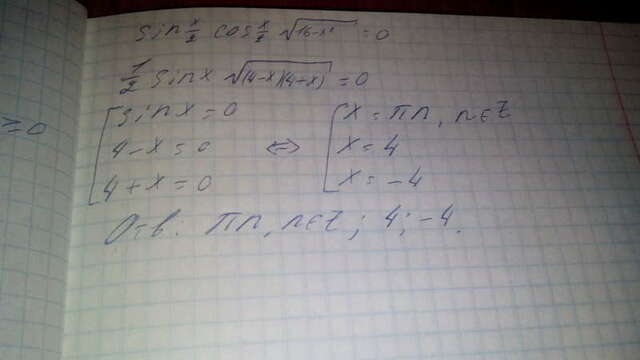 sin x/2 cos x/2 √(16-x²) = 0
1/2 sin x √((4-x)(4+x)) = 0
≥ 0
[ sin x = 0
4-x = 0
4+x = 0
⇔ [ x = πn, n∈Z
x = 4
x = -4
Отв: πn, n∈Z; 4; -4.